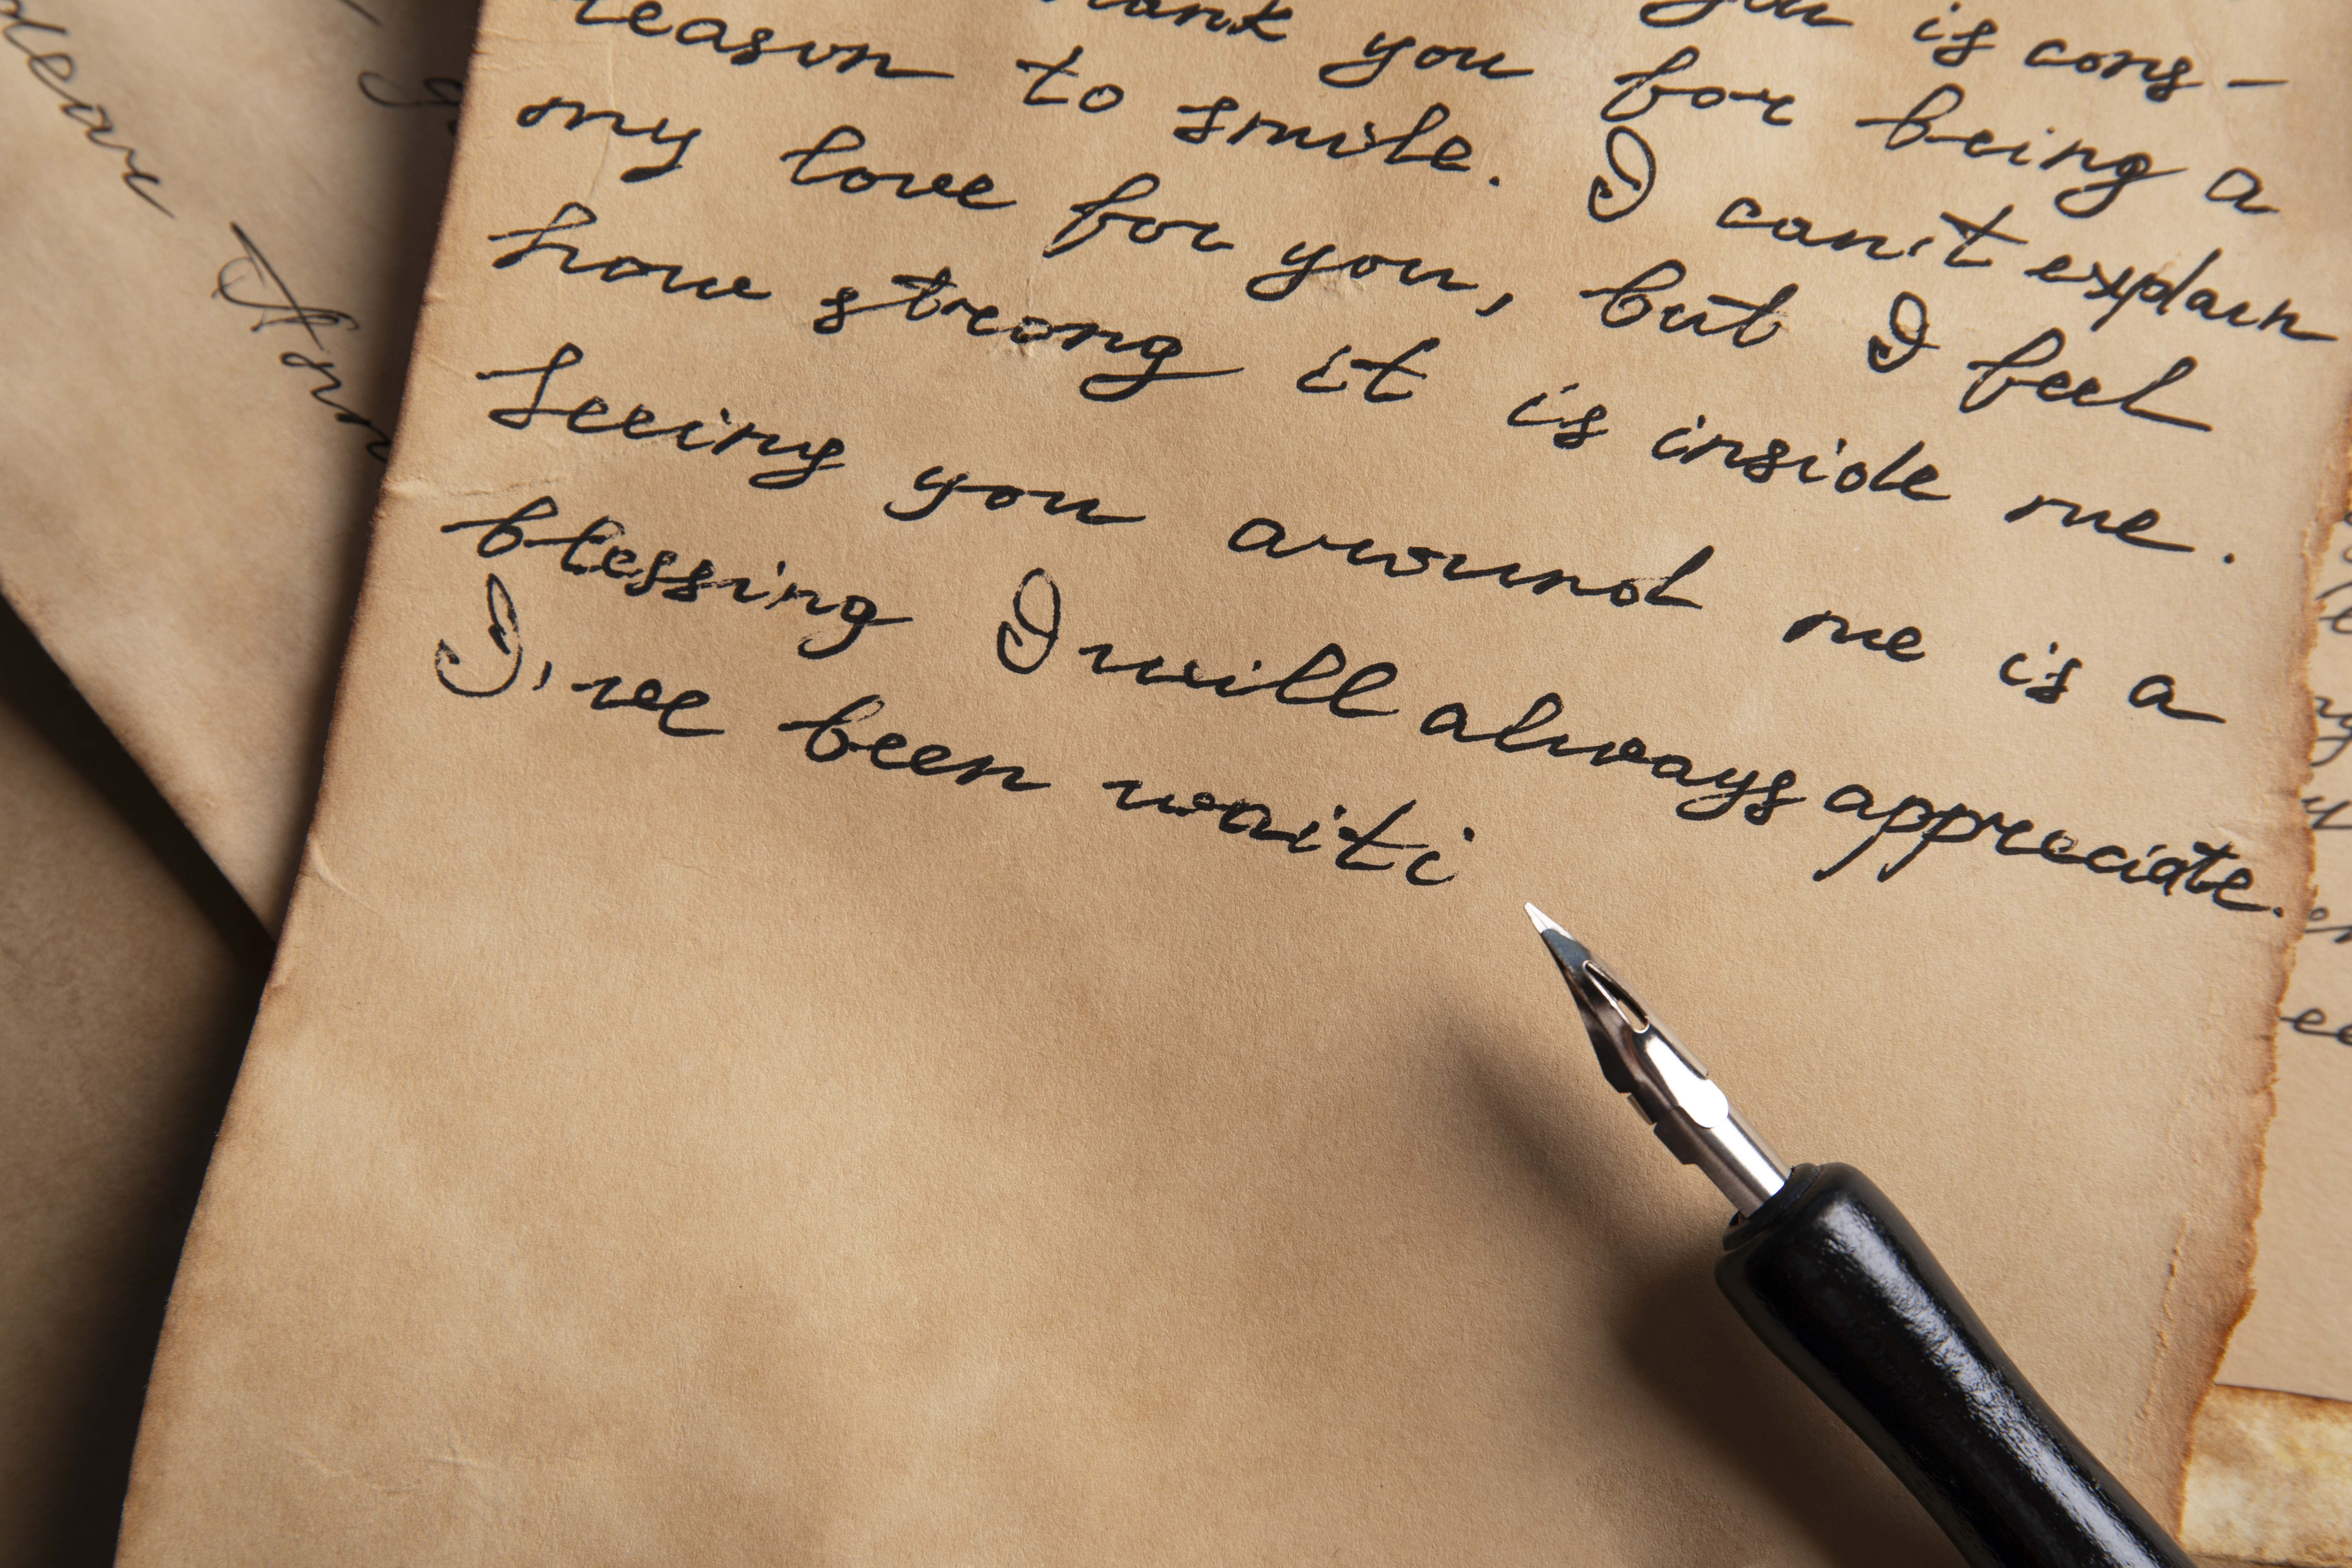 dear Ann
you is cons-
thank you for being a
reason to smile. I can't explain
my love for you, but I feel
how strong it is inside me.
Seeing you around me is a
blessing I will always appreciate.
I've been waiti